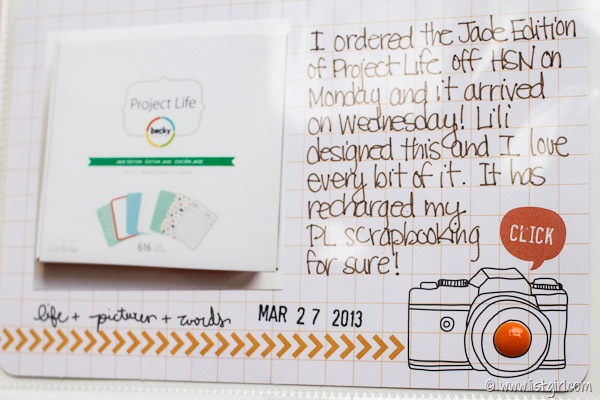 I ordered the Jade Edition
of Project Life off HSN on
Monday and it arrived
on Wednesday! Lili
designed this and I love
every bit of it. It has
recharged my
PL scrapbooking
for sure!
CLICK
Project Life
becky
JADE EDITION · ÉDITION JADE · EDICIÓN JADE
616
life + pictures + words
MAR 27 2013
© www.listgirl.com